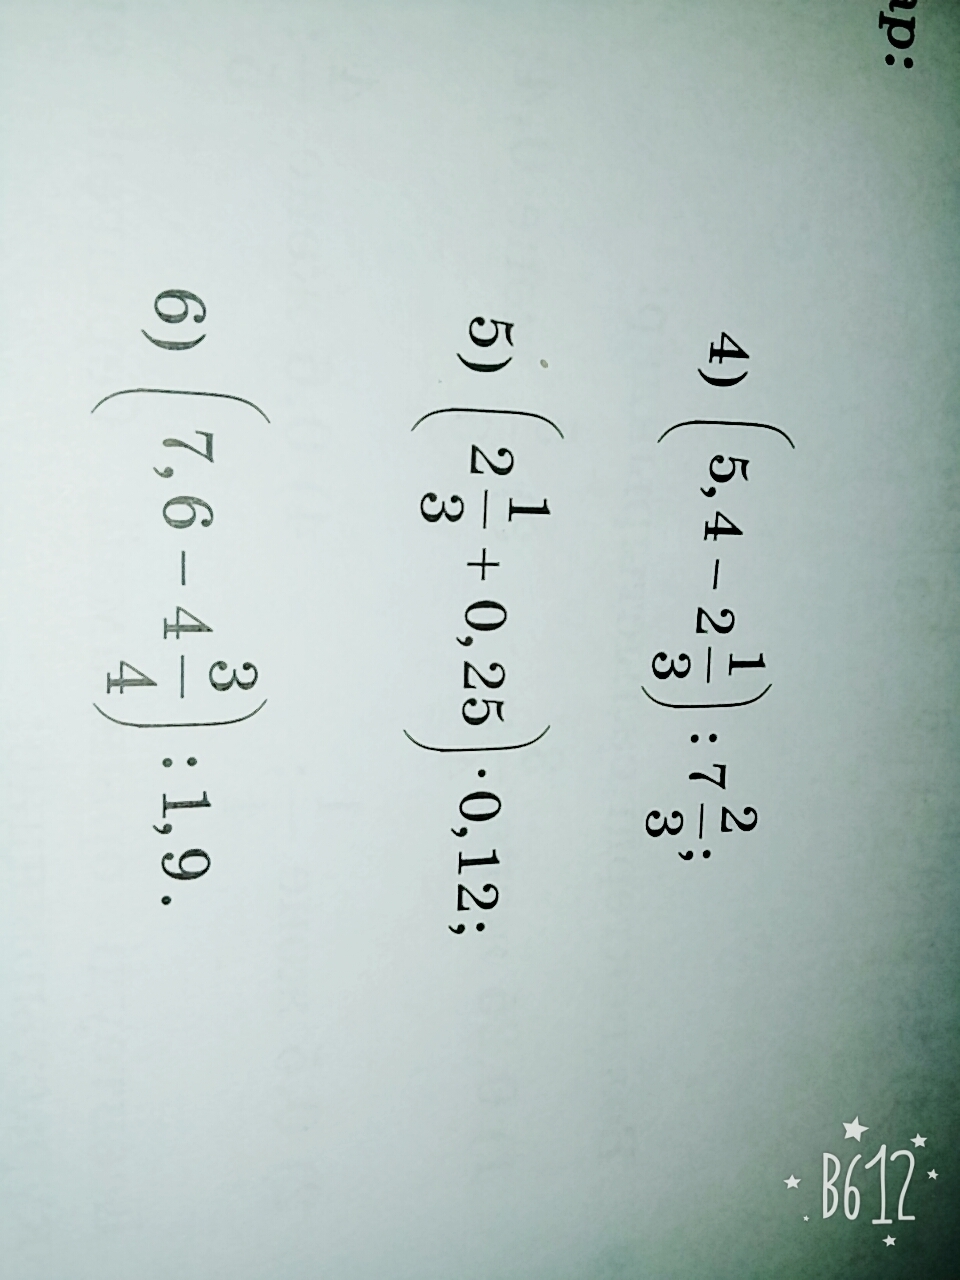 ар:
4) (5,4 − 2 1/3) : 7 2/3;
5) (2 1/3 + 0,25) · 0,12;
6) (7,6 − 4 3/4) : 1,9.
B612